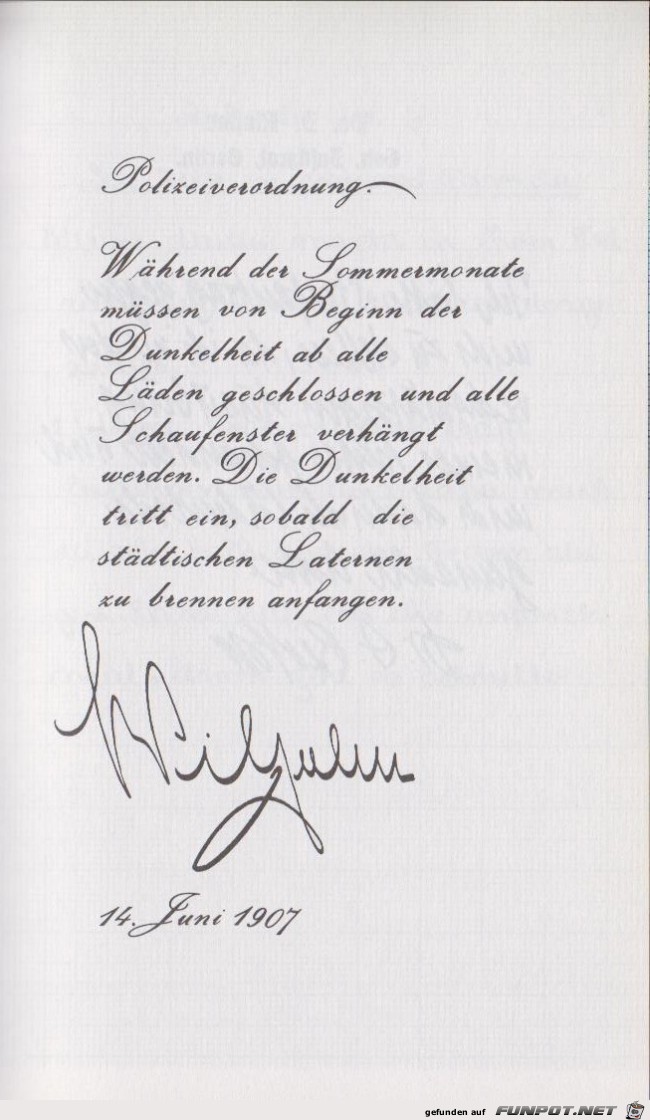 Polizeiverordnung.
Während der Sommermonate
müssen von Beginn der
Dunkelheit ab alle
Läden geschlossen und alle
Schaufenster verhängt
werden. Die Dunkelheit
tritt ein, sobald die
städtischen Laternen
zu brennen anfangen.
Wilhelm
14. Juni 1907
gefunden auf FUNPOT.NET